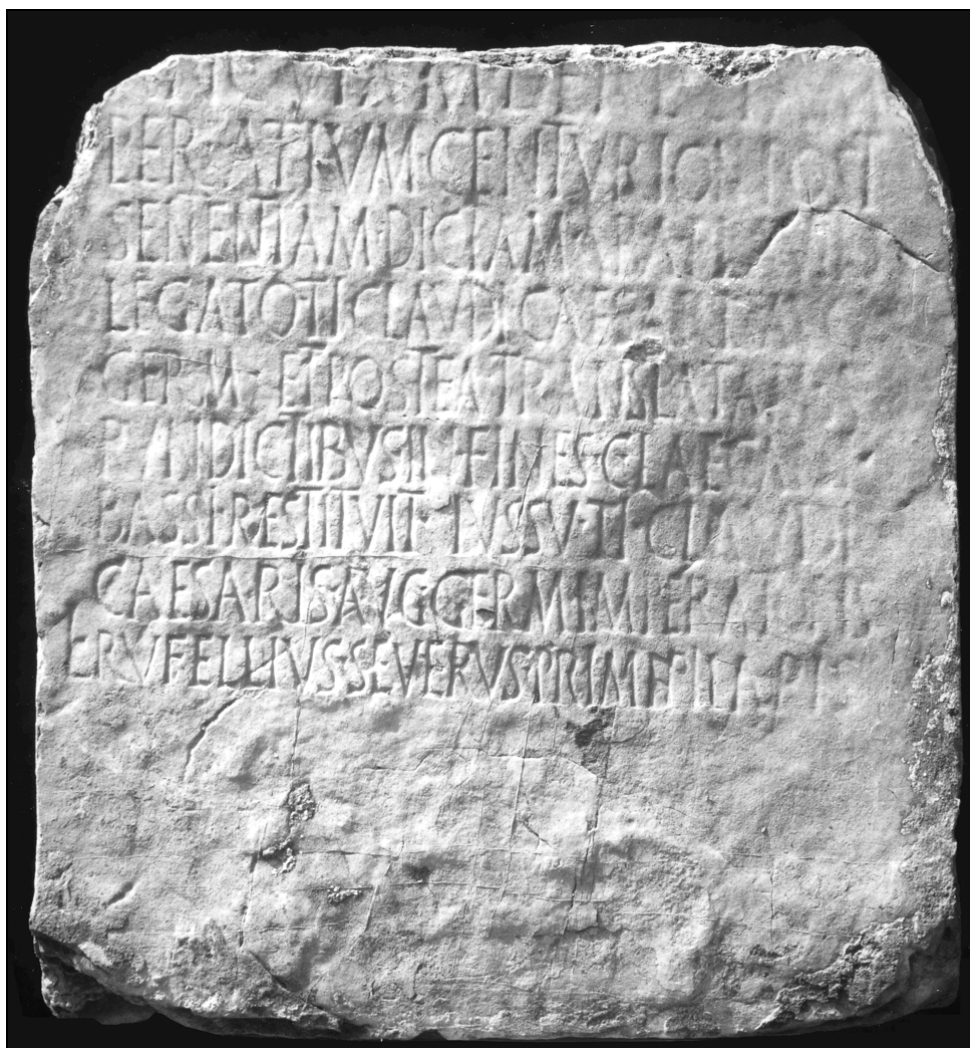 PER·C·ATIVM·CENTVRION·POST
SENTENTIAM·DICTAM
LEGATO·TI·CLAVDI·CAESARIS
GERM· ET·POSTEA·TRANSLATAM
RVNDICTIBVS·IN·FINES·C·LAECANI
BASSI·RESTITVIT· IVSSV·TI·CLAVDI
CAESARIS·AVG·GERM·IMPERATORIS
L·RVFELLIVS·SEVERVS·PRIMIPILARIS